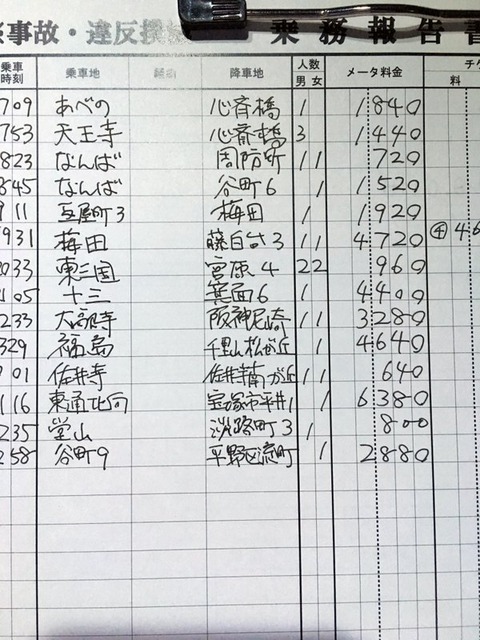 事故・違反 乗務報告書
乗車時刻 乗車地 降車地 人数 男 女 メータ料金 チケ 料
709 あべの 心斉橋 1 1840
753 天王寺 心斉橋 3 1440
823 なんば 周防町 1 1 720
845 なんば 谷町6 1 1520
911 瓦屋町3 梅田 1 1920
931 梅田 藤白台3 1 1 4720 チ 46
033 東三国 宮原4 2 2 960
105 十三 箕面6 1 4400
233 大高寺 阪神尼崎 1 1 3280
329 福島 千里山松が丘 1 4640
01 佐井寺 佐井寺南が丘 1 1 640
116 東通北向 宝塚市平井1 1 6380
235 堂山 淡路町3 1 800
258 谷町9 平野区流町 1 2880